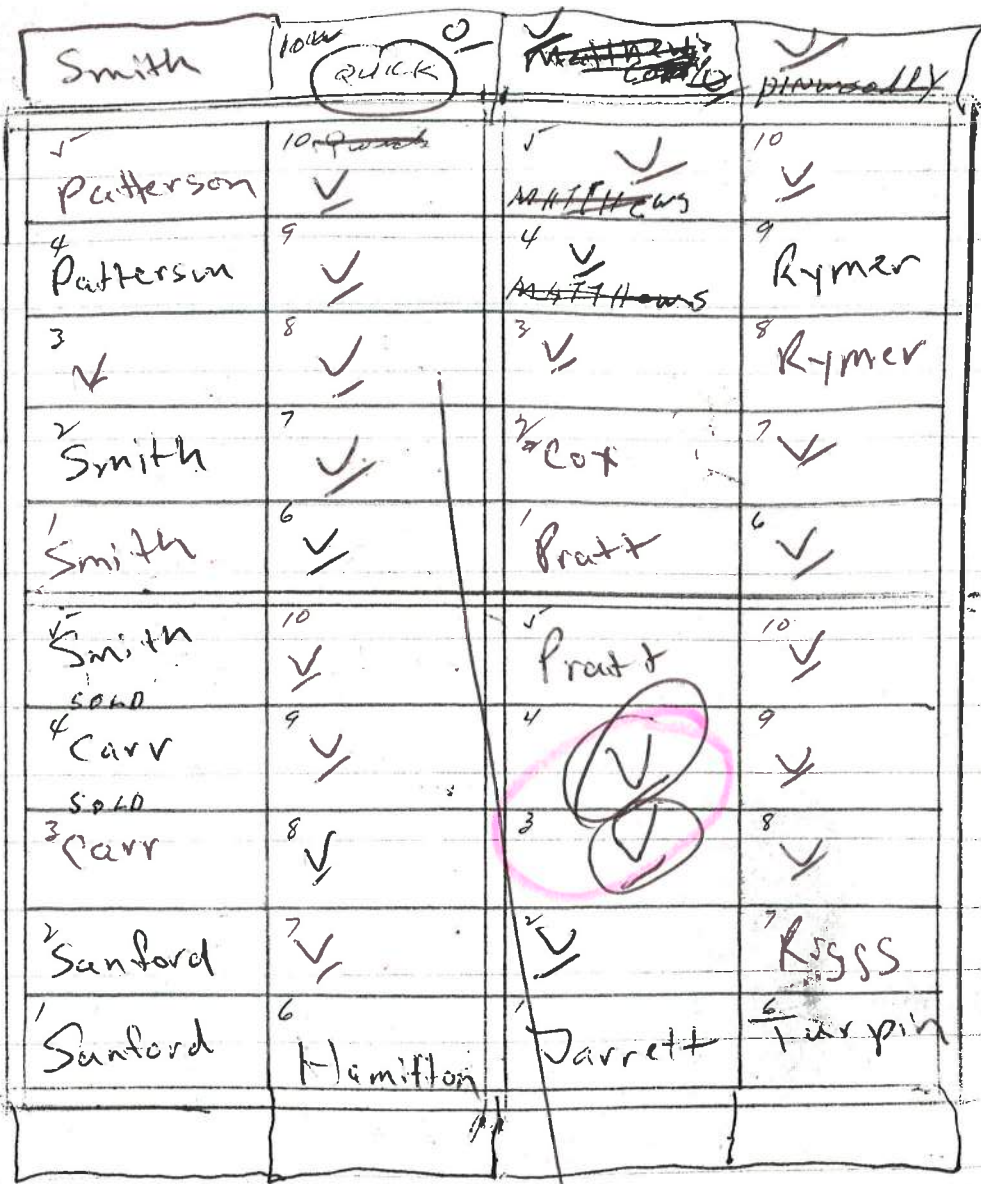 Smith
QUICK
5 Patterson
10 ✓
5 ✓
MATTHEWS
10 ✓
4 Patterson
9 ✓
4 ✓
MATTHEWS
9 Rymer
3 ✓
8 ✓
3 ✓
8 Rymer
2 Smith
7 ✓
2 Cox
7 ✓
1 Smith
6 ✓
1 Pratt
6 ✓
5 Smith
SOLD
10 ✓
5 Pratt
10 ✓
4 Carr
SOLD
9 ✓
4 ✓
9 ✓
3 Carr
8 ✓
3 ✓
8 ✓
2 Sanford
7 ✓
2 ✓
7 Riggs
1 Sanford
6 Hamilton
1 Jarrett
6 Turpin